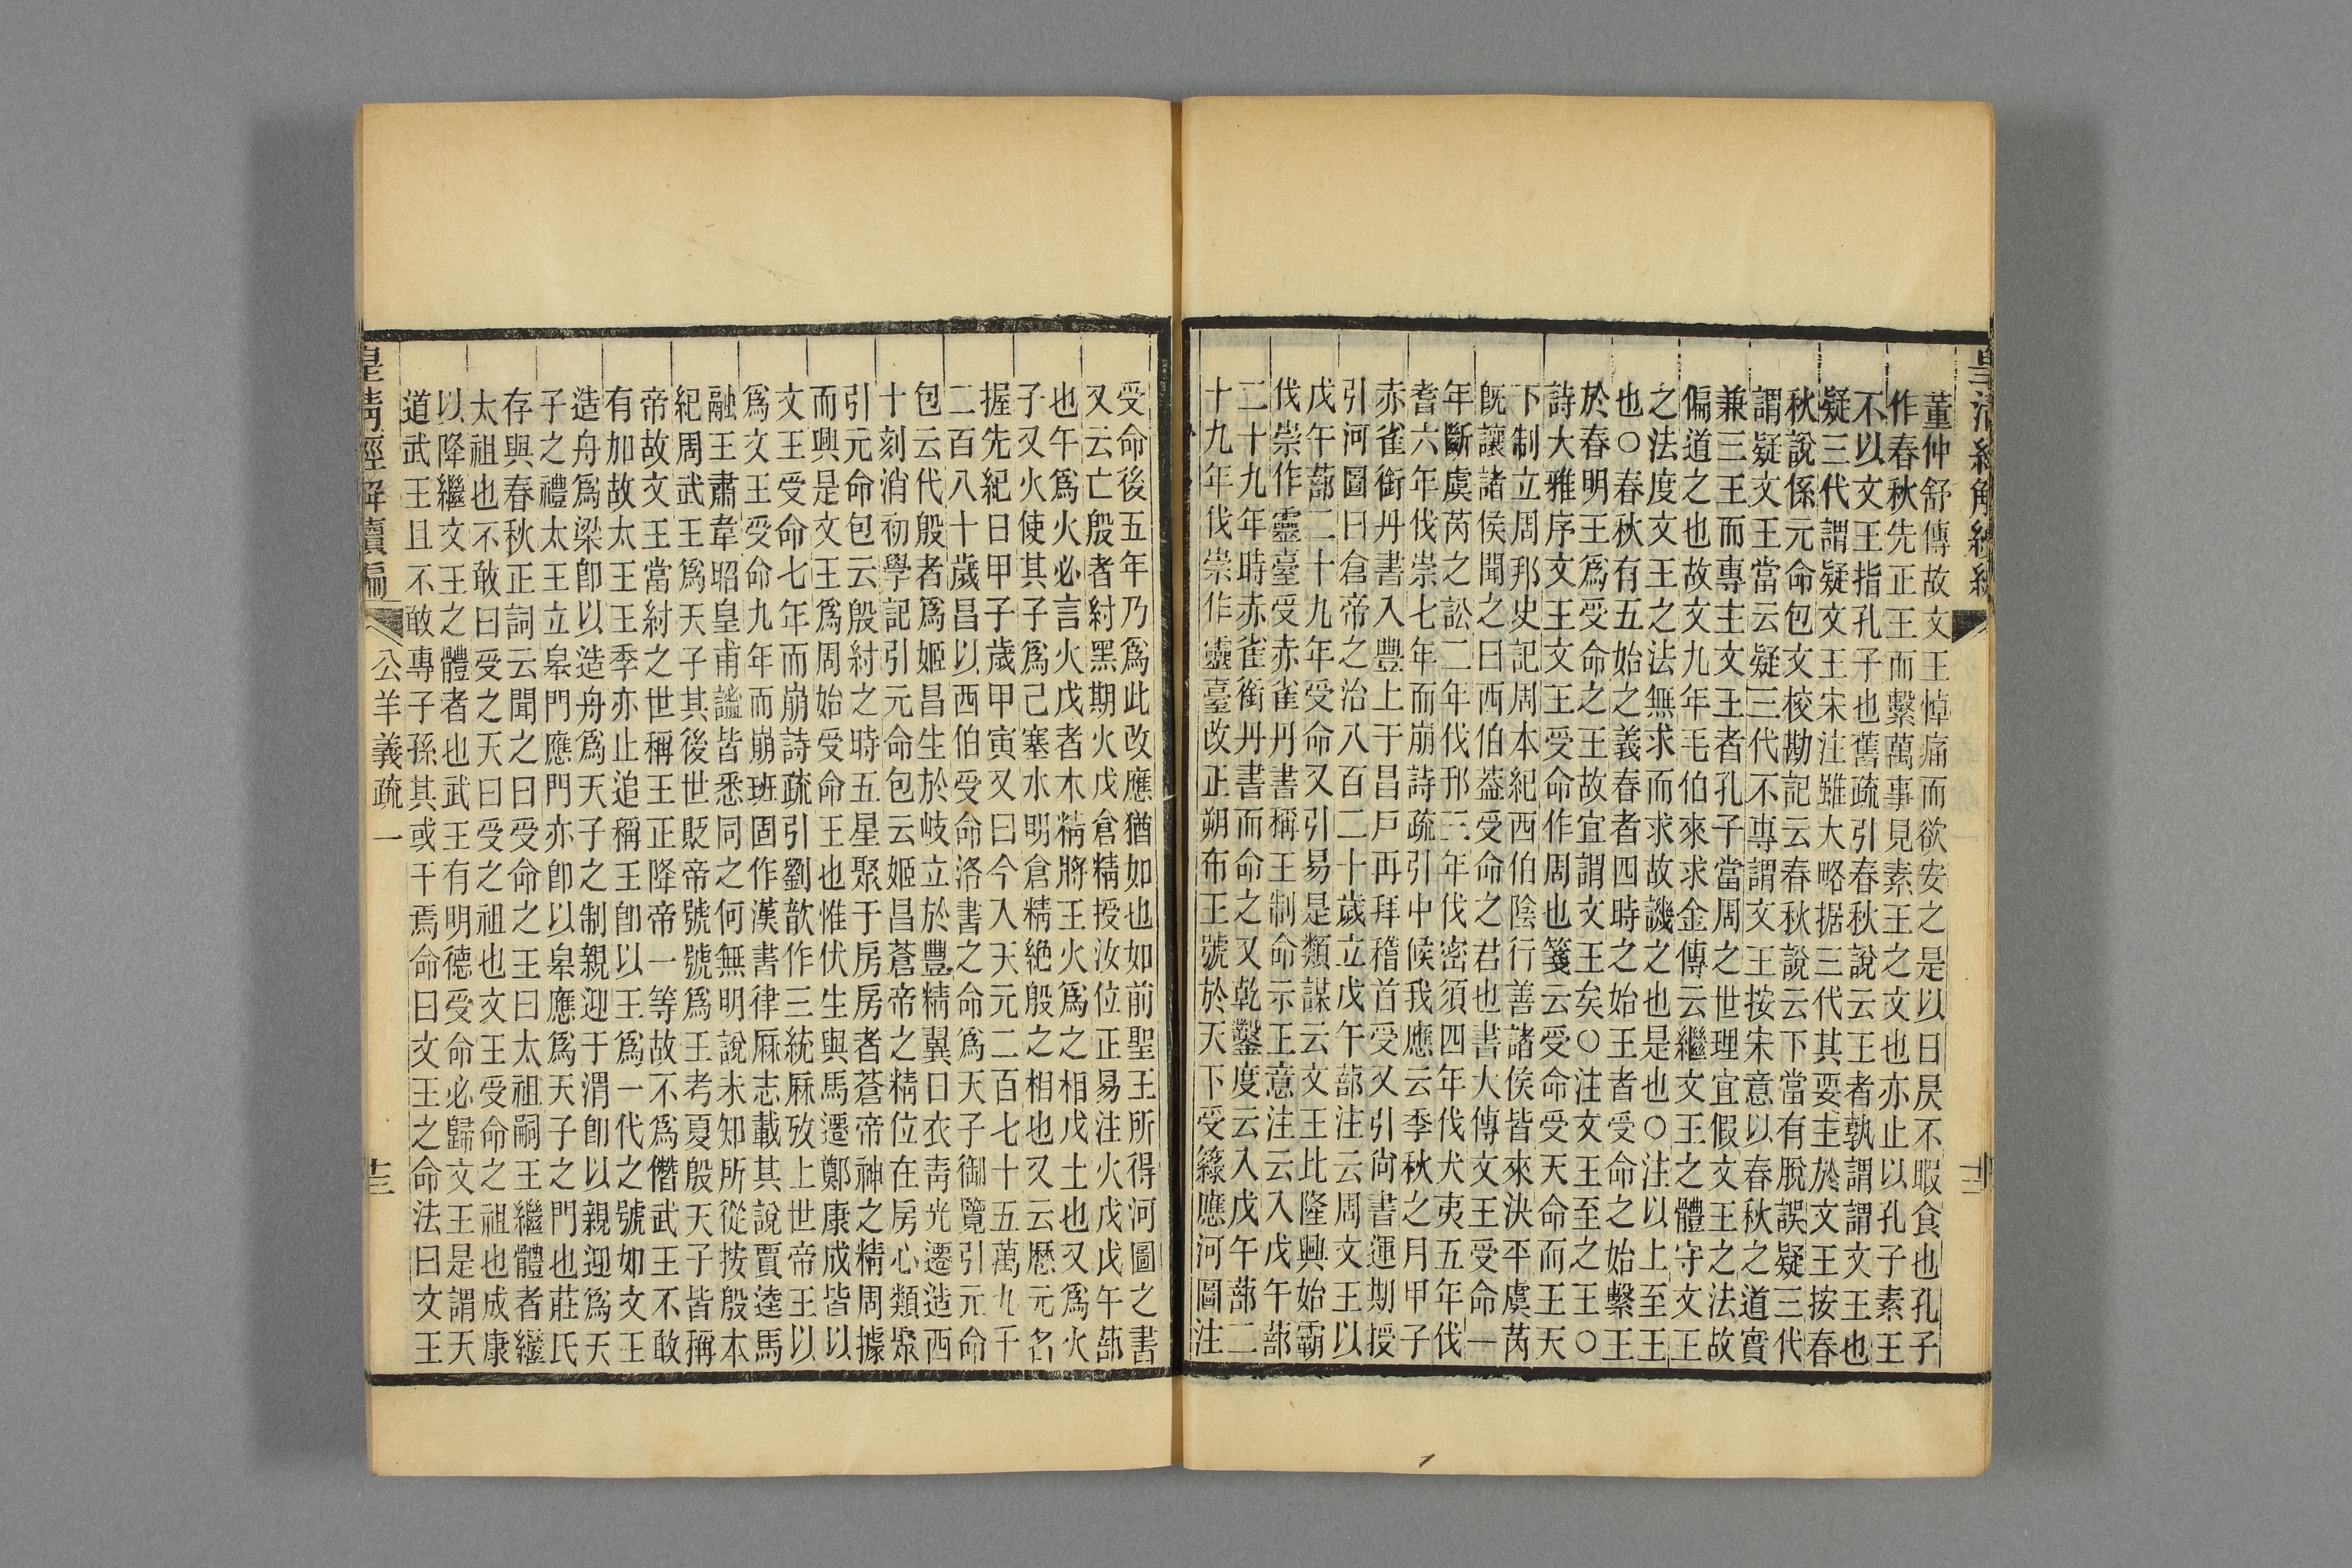 皇清經解續編
董仲舒傳故文王悼痛而欲安之是以日昃不暇食也孔子
作春秋先正王而繫萬事見素王之文也亦止以孔子素王
不以文王指孔子也舊疏引春秋說云王者孰謂謂文王也
疑三代謂疑文王宋注雖大略据三代其要主於文王按春
秋說係元命包文校勘記云春秋說云下當有脫誤疑三代
謂疑文王當云疑三代不專謂文王按宋意以春秋之道實
兼三王而專主文王者孔子當周之世理宜假文王之法故
偏道之也故文九年毛伯來求金傳云繼文王之體守文王
之法度文王之法無求而求故譏之也是也○注以上至王
也○春秋有五始之義春者四時之始王者受命之始繫王
於春明王爲受命之王故宜謂文王矣○注文王至之王○
詩大雅序文王文王受命作周也箋云受命受天命而王天
下制立周邦史記周本紀西伯陰行善諸侯皆來決平虞芮
旣讓諸侯聞之曰西伯葢受命之君也書大傳文王受命一
年斷虞芮之訟二年伐邘三年伐密須四年伐犬夷五年伐
耆六年伐崇七年而崩詩疏引中候我應云季秋之月甲子
赤雀銜丹書入豐上于昌戶再拜稽首受又引尚書運期授
引河圖曰倉帝之治八百二十歲立戊午蔀注云周文王以
戊午蔀二十九年受命又引易是類謀云文王比隆興始霸
伐崇作靈臺受赤雀丹書稱王制命示王意注云入戊午蔀
二十九年時赤雀銜丹書而命之又乾鑿度云入戊午蔀二
十九年伐崇作靈臺改正朔布王號於天下受籙應河圖注
受命後五年乃爲此改應猶如也如前聖王所得河圖之書
又云亡殷者紂黑期火戊倉精授汝位正易注火戊戊午蔀
也午爲火必言火戊者木精將王火爲之相戊土也又爲火
子又火使其子爲己塞水明倉精絶殷之相也又云厯元名
握先紀日甲子歲甲寅又曰今入天元二百七十五萬九千
二百八十歲昌以西伯受命洛書之命爲天子御覽引元命
包云代殷者爲姬昌生於岐立於豐精翼日衣靑光遷造西
十刻消初學記引元命包云姬昌蒼帝之精位在房心類聚
引元命包云殷紂之時五星聚于房房者蒼帝神之精周據
而興是文王爲周始受命王也惟伏生與馬遷鄭康成皆以
文王受命七年而崩詩疏引劉歆作三統厤攷上世帝王以
爲文王受命九年而崩班固作漢書律厤志載其說賈逵馬
融王肅韋昭皇甫謐皆悉同之何無明說未知所從按殷本
紀周武王爲天子其後世貶帝號號爲王考夏殷天子皆稱
帝故文王當紂之世稱王正降帝一等故不爲僭武王不敢
有加故太王王季亦止追稱王卽以王爲一代之號如文王
造舟爲梁卽以造舟爲天子之制親迎于渭卽以親迎爲天
子之禮太王立皋門應門亦卽以皋應爲天子之門也莊氏
存與春秋正詞云聞之曰受命之王曰太祖嗣王繼體者繼
太祖也不敢曰受之天曰受之祖也文王受命之祖也成康
以降繼文王之體者也武王有明德受命必歸文王是謂天
道武王且不敢專子孫其或干焉命曰文王之命法曰文王
皇清經解續編
公羊義疏一
十三